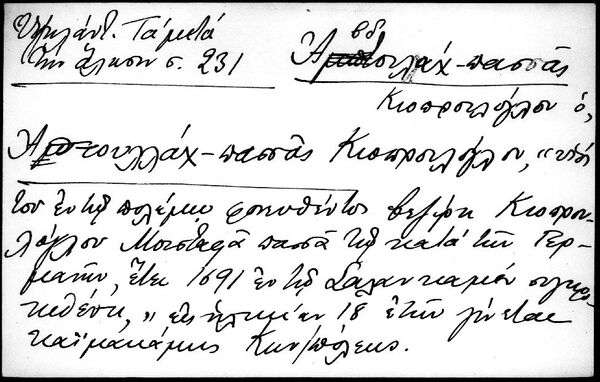 Ὑψηλάντ. Τὰ μετὰ
τὴν ἅλωσιν σ. 231
Ἀβδουλὰχ-πασσᾶς
Κιοπρουλόγλου ὁ,
Ἀβδουλλὰχ-πασσᾶς Κιοπρουλόγλου, "υἱὸς
τοῦ ἐν τῷ πολέμῳ φονευθέντος βεζίρη Κιοπρου-
λόγλου Μουσταφᾶ πασσᾶ τῷ κατὰ τῶν Γερ-
μανῶν, ἔτει 1691 ἐν τῷ Σαλανκαμὲν συγκρο-
τηθέντι, " εἰς ἡλικίαν 18 ἐτῶν γίνεται
καϊμακάμης Κων/πόλεως.